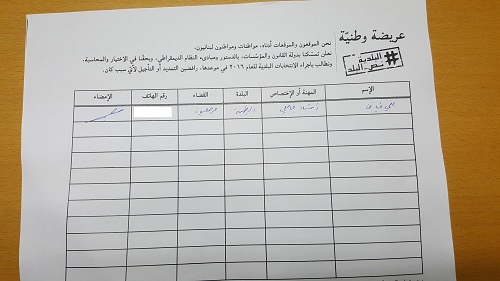 عريضة وطنيّة
#البلدية نص البلد
نحن الموقعون والموقعات أبناء، مواطنات ومواطنون لبنانيون،
نعلن تمسّكنا بدولة القانون والمؤسّسات، بالدستور ومبادئ النظام الديمقراطي، وبحقّنا في الاختيار والمحاسبة،
ونطالب بإجراء الانتخابات البلدية للعام ٢٠١٦ في موعدها، رافضين التمديد أو التأجيل لأيّ سبب كان.
الإسم المهنة أو الإختصاص البلدة القضاء رقم الهاتف الإمضاء